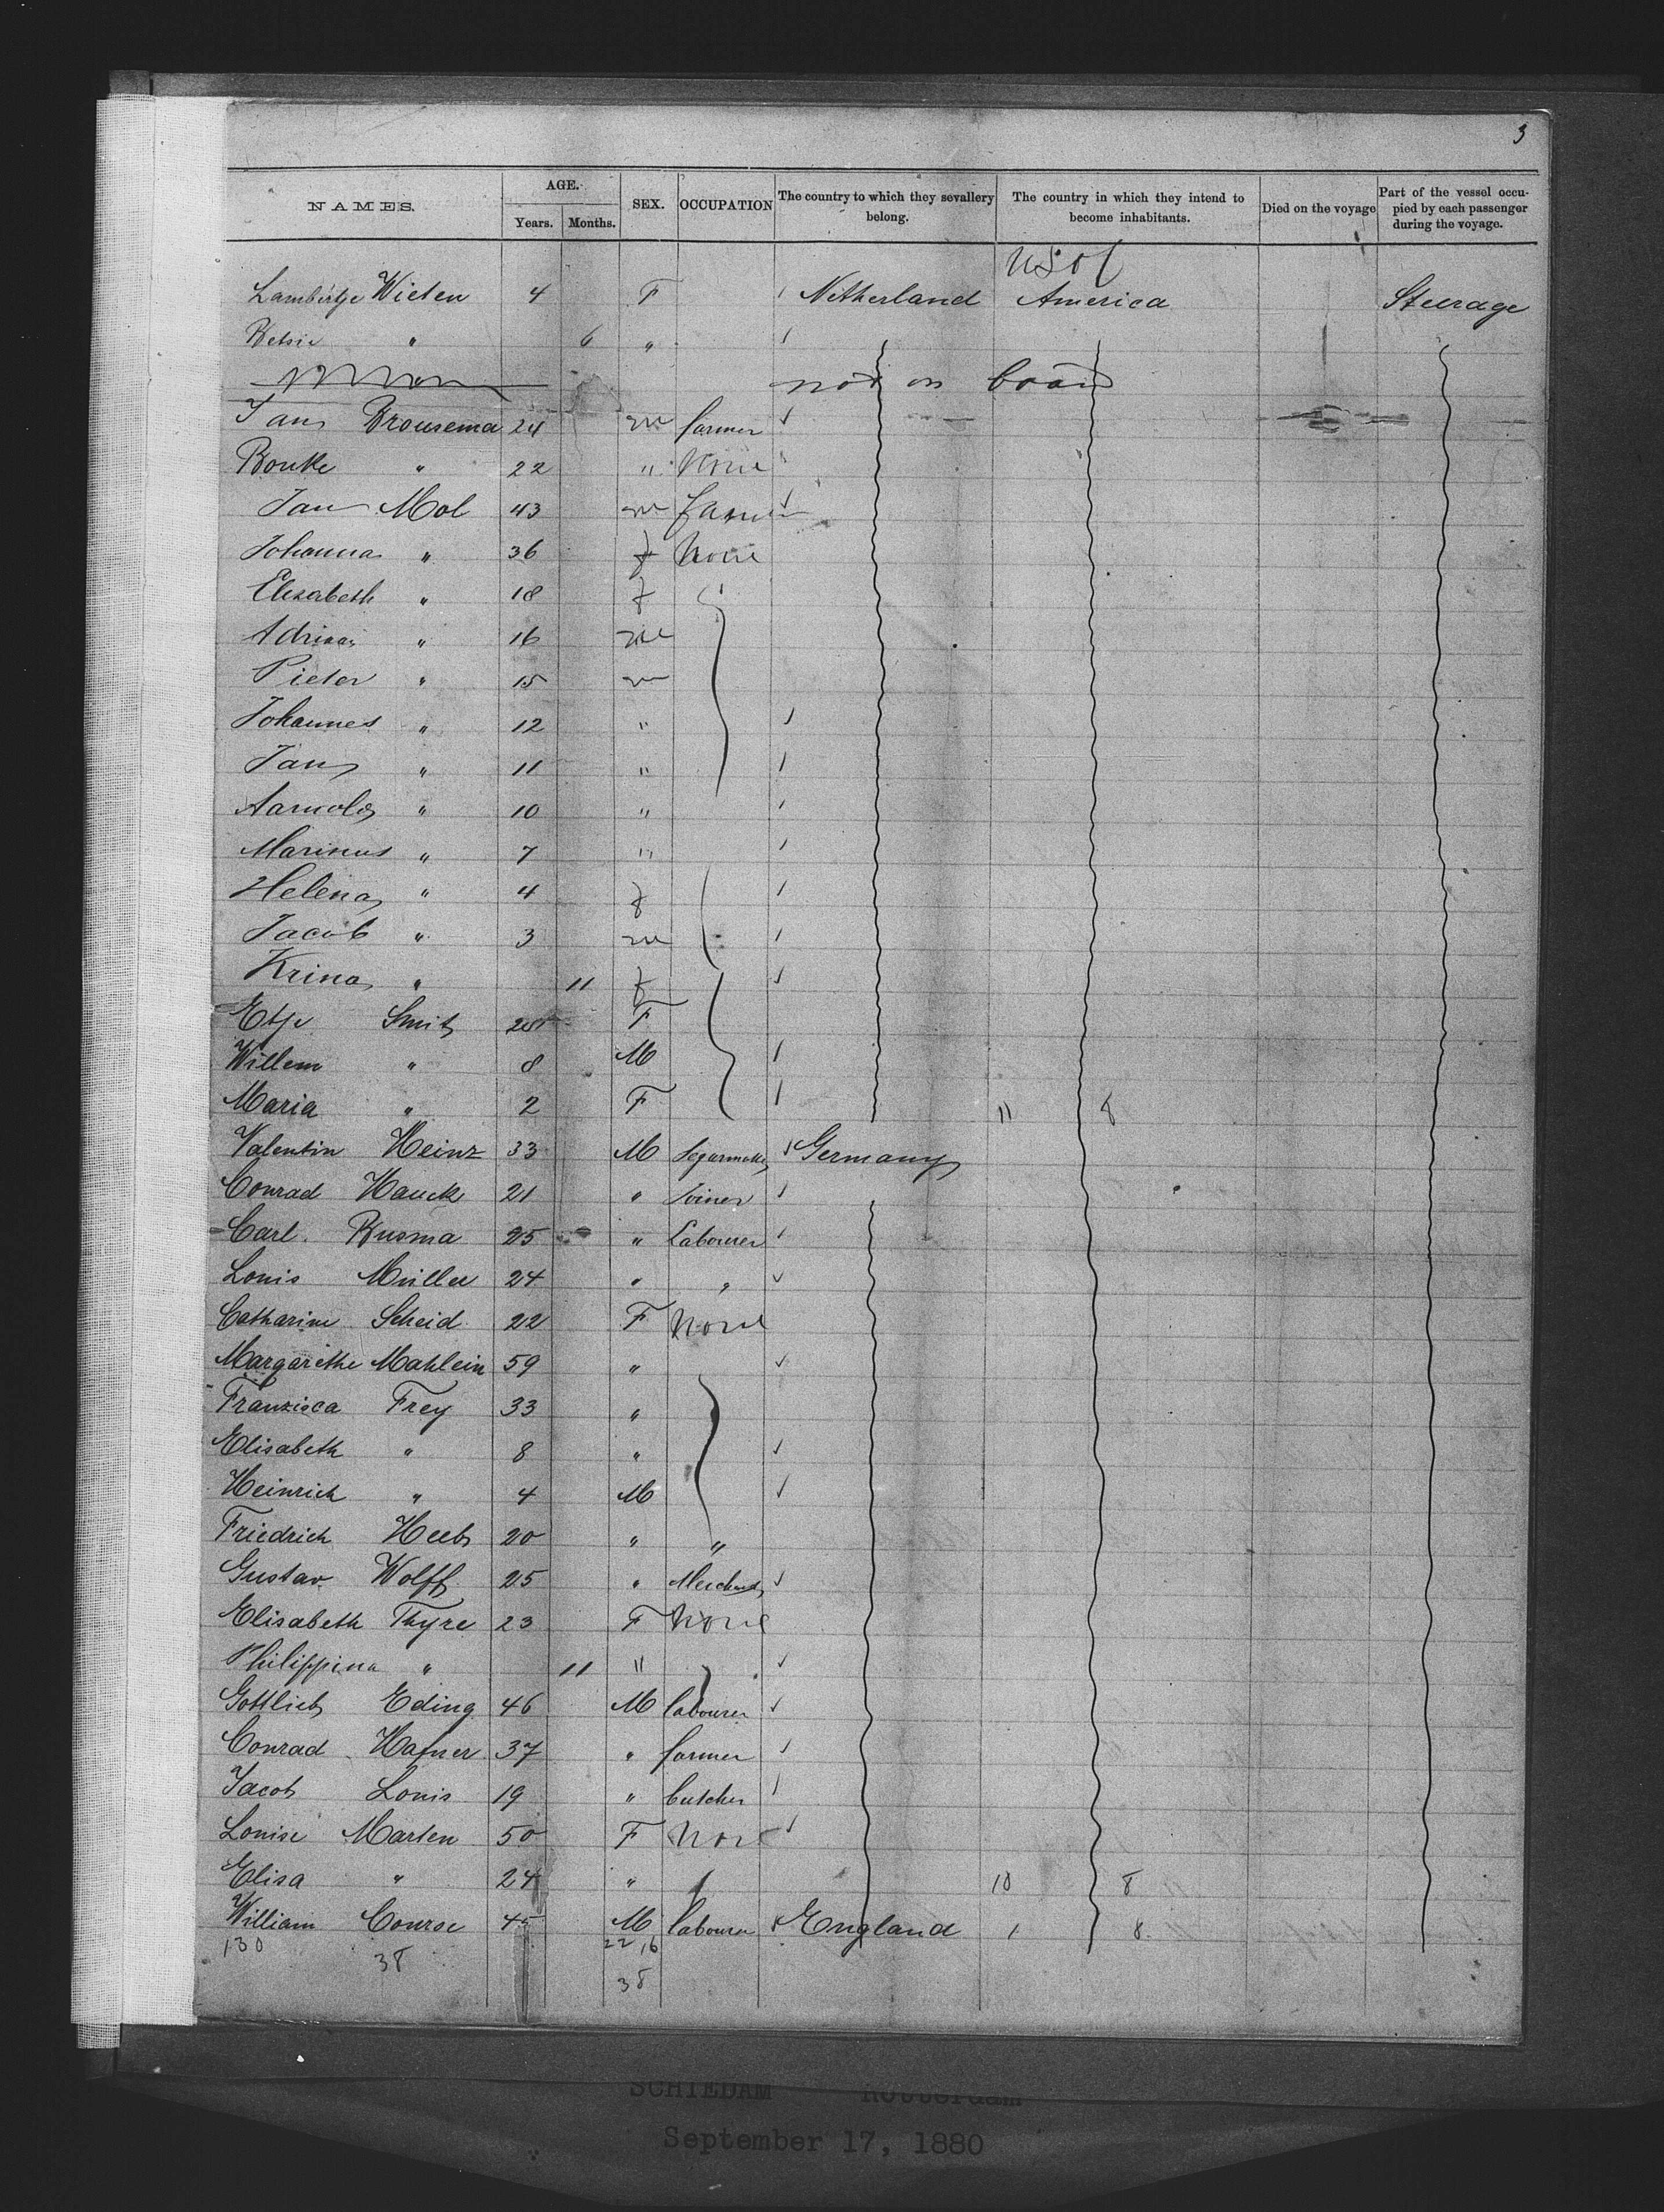 3
NAMES. AGE. SEX. OCCUPATION The country to which they sevallery belong. The country in which they intend to become inhabitants. Died on the voyage Part of the vessel occupied by each passenger during the voyage.
Years. Months.
US of
Lambertje Wieten 4 F Netherland America Steerage
Betsie " 6 "
not on board
Jan Brousema 24 m farmer
Bouke " 22 " None
Jan Mol 43 m farmer
Johanna " 36 f None
Elisabeth " 18 f
Adriaan " 16 m
Pieter " 15 m
Johannes " 12 "
Jan " 11 "
Aarnold " 10 "
Marinus " 7 "
Helena " 4 f
Jacob " 3 m
Krina " 11 f
Etje Smit F
Willem " 8 M
Maria " 2 F 11 8
Valentin Heinz 33 M Segarmaker Germany
Conrad Hauck 21 " Joiner
Carl Busma 25 " Labourer
Louis Müller 24 " "
Catharine Scheid 22 F None
Margarethe Mahlein 59 "
Franzisca Frey 33 "
Elisabeth " 8 "
Heinrich " 4 M
Friedrich Heeb 20 " "
Gustav Wolff 25 " Merchant
Elisabeth Thyre 23 F None
Philippina " 11 "
Gottlieb Eding 46 M labourer
Conrad Hafner 37 " farmer
Jacob Louis 19 " butcher
Louise Marten 50 F None
Elisa " 24 " 18 8
William Course 45 M labourer England 1 8
130 38 22 16
38
SCHIEDAM Rotterdam
September 17, 1880